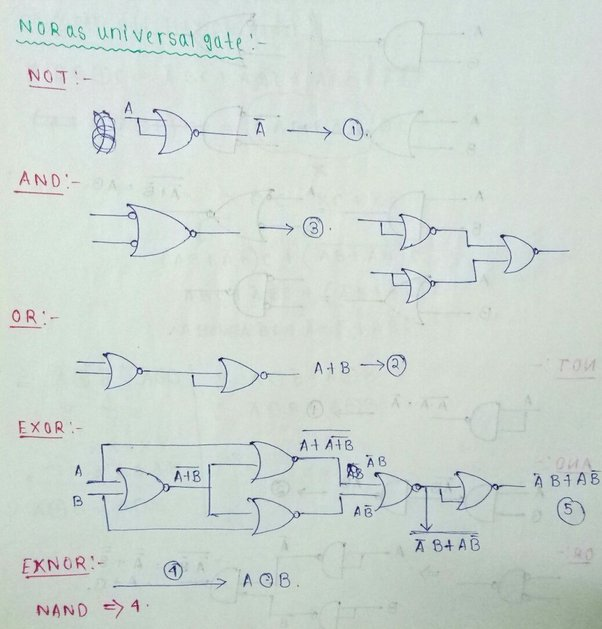 NOR as universal gate:-
NOT:-
A A̅ → ①.
AND:-
→ ③.
OR:-
A+B → ②
EXOR:-
A B A̅+̅B̅ A̅+̅ ̅A̅+̅B̅ A̅B AB̅ A̅̅ ̅B̅+̅A̅B̅̅ A̅B+AB̅
⑤
EXNOR:-
④ → A⊙B.
NAND ⇒ 4.